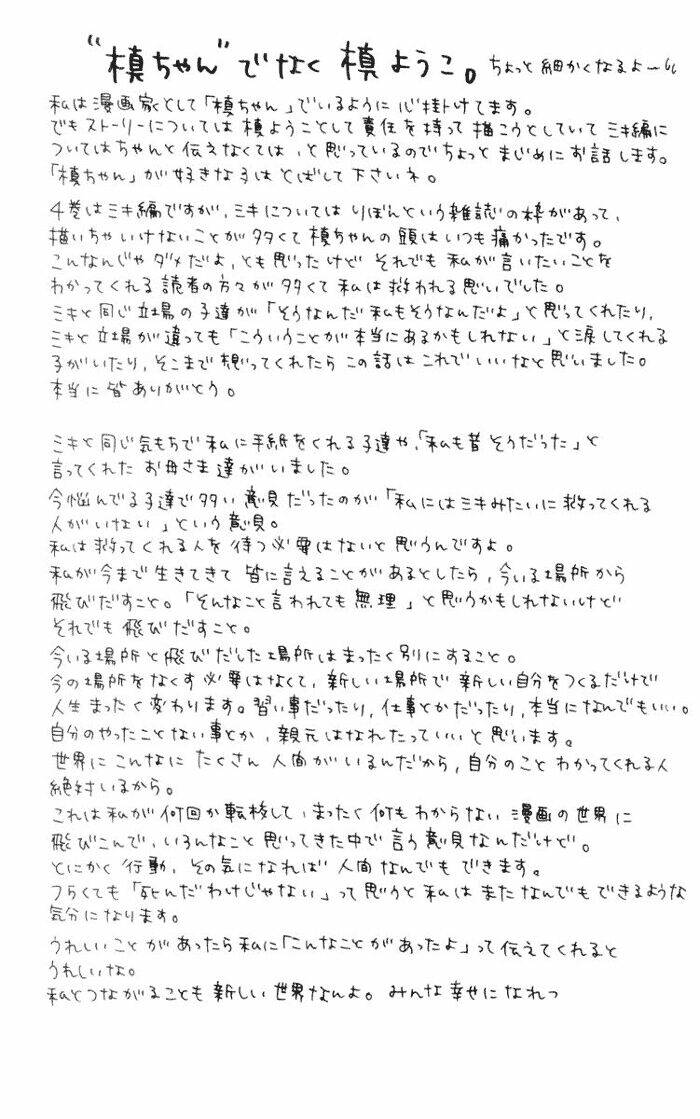 “槙ちゃん”でなく 槙ようこ。ちょっと細かくなるよー
私は漫画家として「槙ちゃん」でいるように心掛けてます。
でもストーリーについては 槙ようことして 責任を持って 描こうとしていて ミキ編に
ついてはちゃんと伝えなくては、と思っているのでちょっと まじめに お話します。
「槙ちゃん」が好きな子は とばして下さいネ。
4巻はミキ編ですが、ミキについては りぼんという雑誌の枠があって、
描いちゃ いけないことが多くて 槙ちゃんの頭はいつも痛かったです。
こんなんじゃ ダメだよ、とも思ったけど それでも 私が言いたいことを
わかってくれる読者の方々が多くて 私は救われる思いでした。
ミキと同じ立場の子達が「そうなんだ私もそうなんだよ」と思ってくれたり、
ミキと立場が違っても「こういうことが本当にあるかもしれない」と涙してくれる
子がいたり、そこまで思ってくれたら この話は これでいいなと思いました。
本当に皆ありがとう。
ミキと同じ気もちで 私に手紙をくれる子達や、「私も昔そうだった」と
言ってくれた お母さま達がいました。
今悩んでる子達で多い意見だったのが「私にはミキみたいに救ってくれる
人がいない」という意見。
私は救ってくれる人を待つ必要はないと思うんですよ。
私が今まで生きてきて 皆に言えることがあるとしたら、今いる場所から
飛びだすこと。「そんなこと言われても無理」と思うかもしれないけど
それでも飛びだすこと。
今いる場所と飛びだした場所はまったく別にすること。
今の場所をなくす必要はなくて、新しい場所で新しい自分をつくるだけで
人生まったく変わります。習い事だったり、仕事とかだったり、本当になんでもいい。
自分のやったことない事とか、親元はなれたっていいと思います。
世界にこんなに たくさん 人間がいるんだから、自分のこと わかってくれる人
絶対いるから。
これは私が何回か転校して、まったく何もわからない 漫画の世界に
飛びこんで、いろんなこと思ってきた中で言う意見なんだけど。
とにかく行動、その気になれば 人間なんでも できます。
つらくても「死んだわけじゃない」って思うと私は またなんでもできるような
気分になります。
うれしいことがあったら私に「こんなことがあったよ」って伝えてくれると
うれしいな。
私とつながることも新しい世界なんよ。みんな幸せになれっ